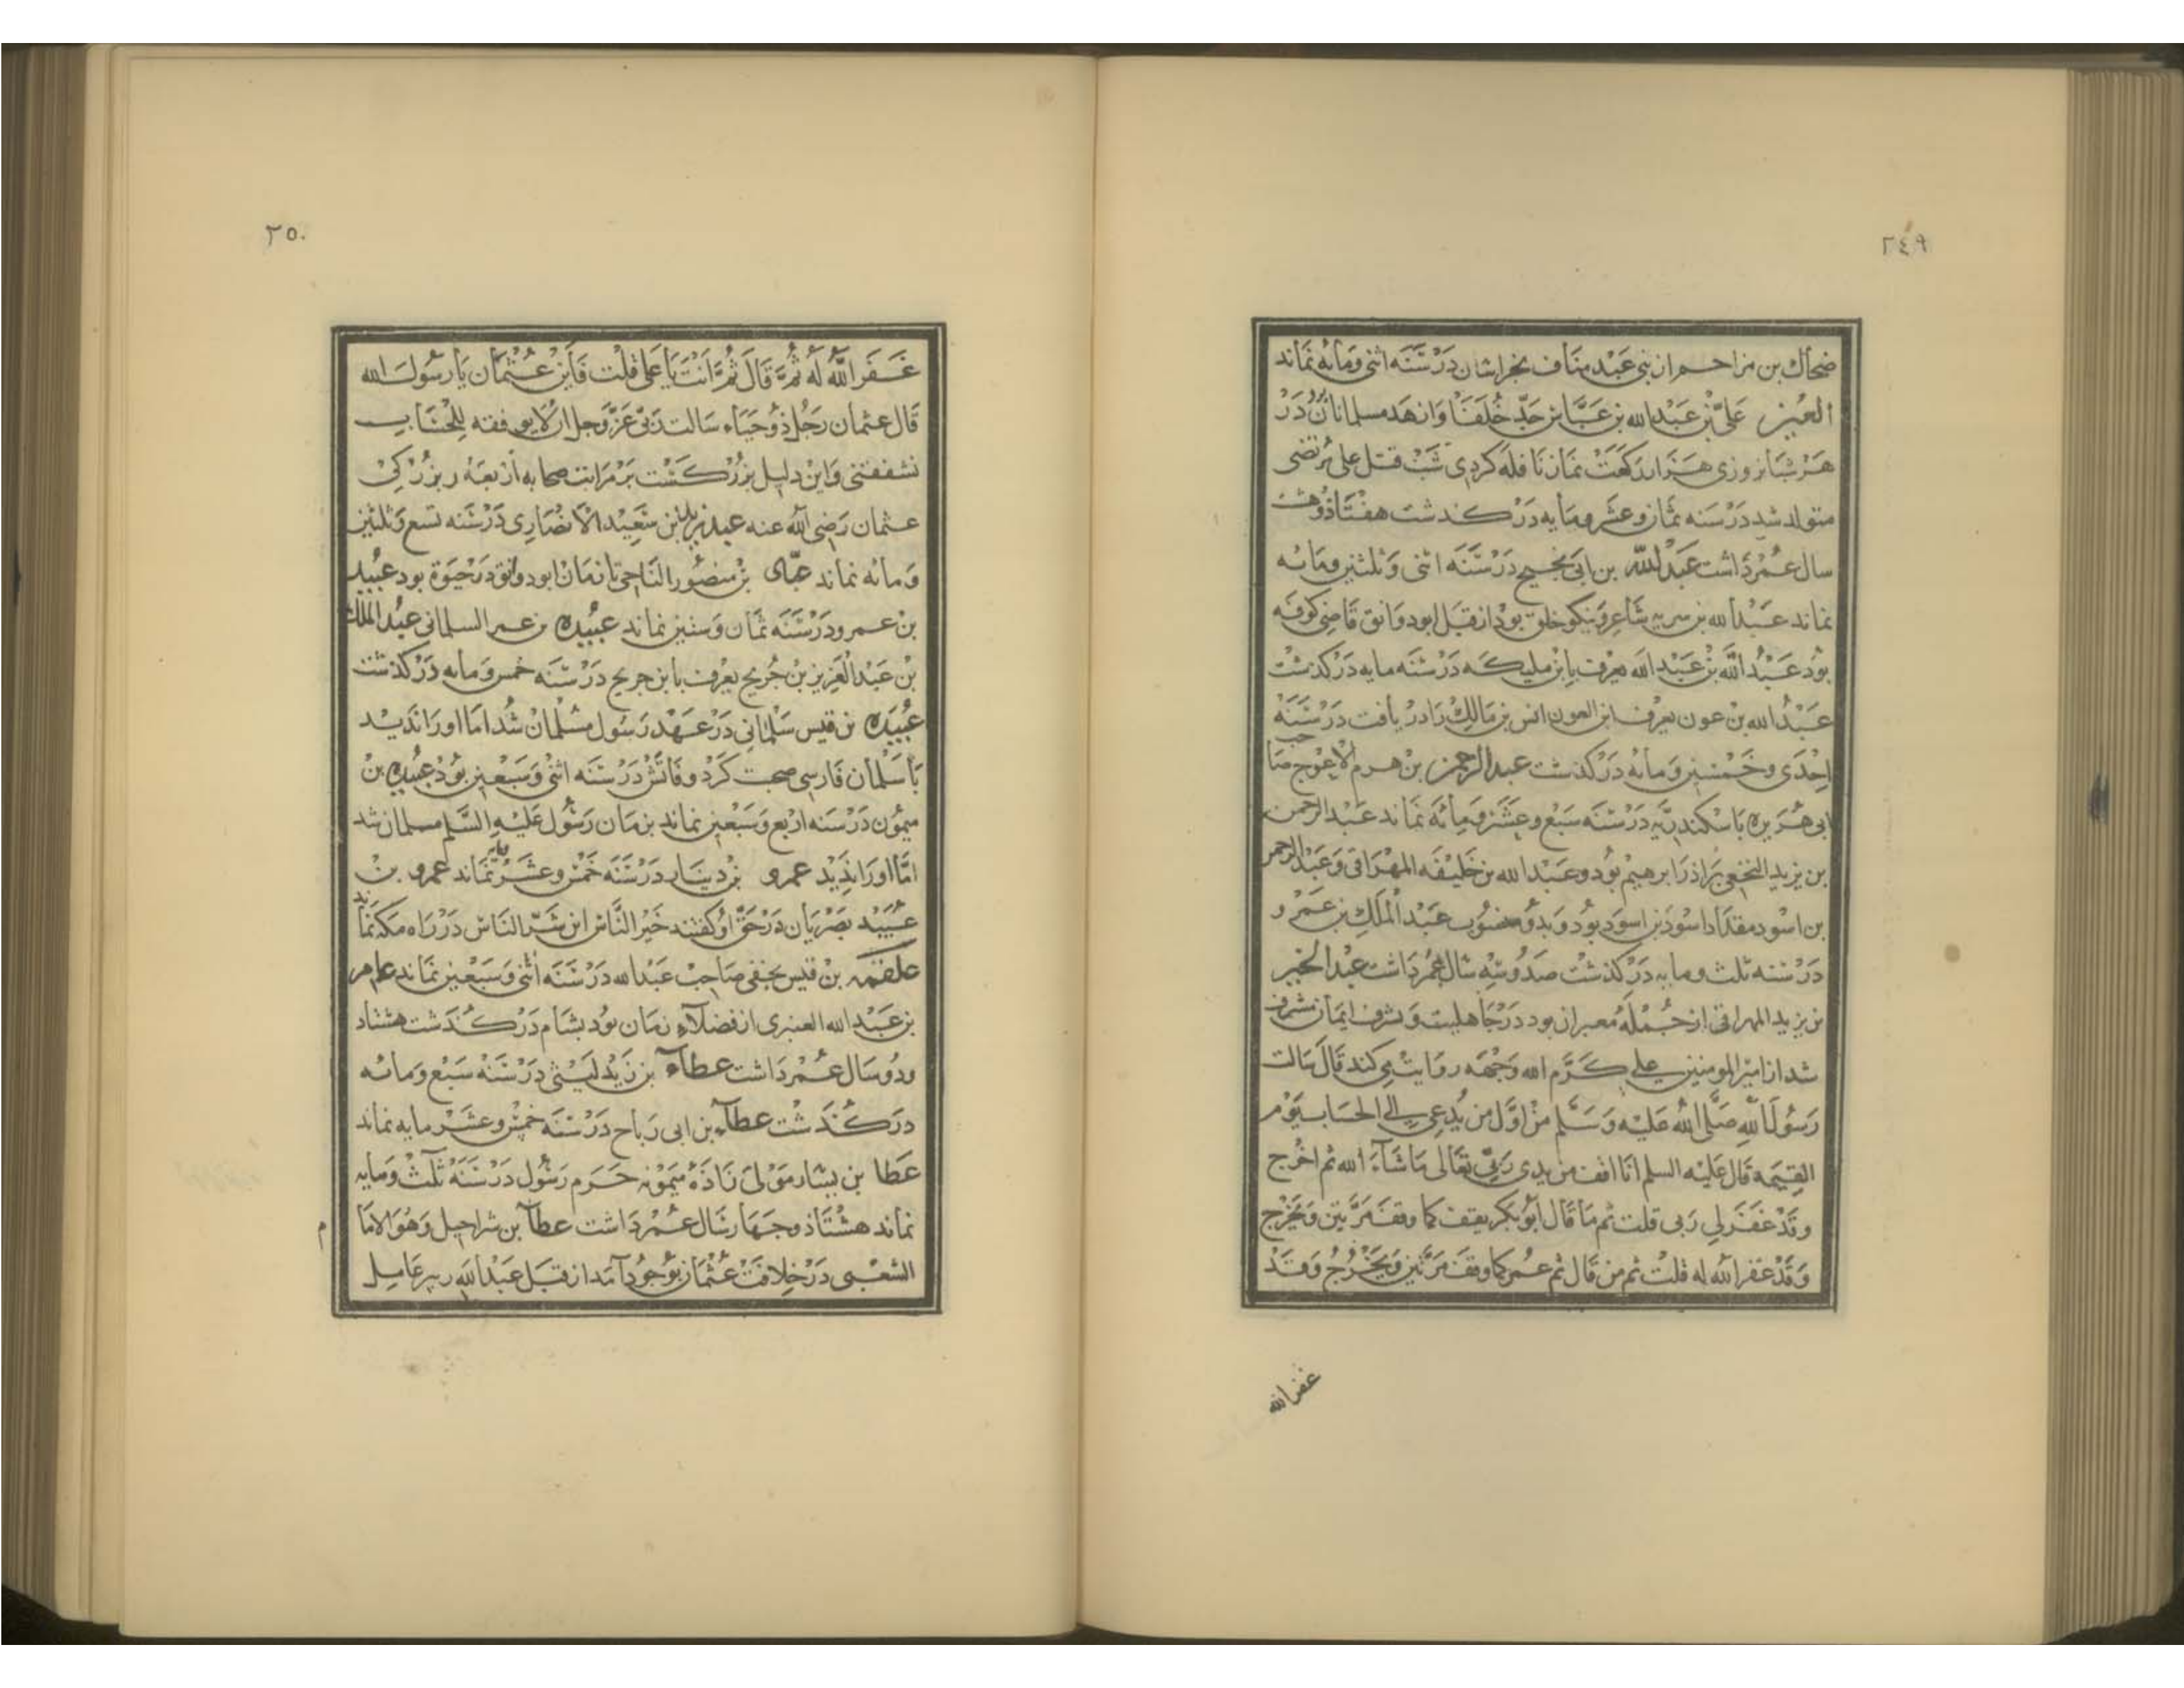 ٢٤٩
ضحاك بن مزاحم از بنی عبد مناف بخراسان در سنه اثنی ومائه نماند
العين علی بن عبدالله بن عباس جد خلفا وازهد مسلمانان در
هر شبانروزی هزار رکعت نماز نافله کردی شب قتل علی مرتضی
متولد شد در سنه ثمان وعشر ومایه درکذشت هفتاد وهشت
سال عمر داشت عبدالله بن ابی نجیح در سنه اثنی وثلثین ومائه
نماند عبدالله بن سریه شاعر ونیکو خلق بود از قبل ابودوانق قاضی کوفه
بود عبدالله بن عبیدالله یعرف بابن ملیکه در سنه مایه درکذشت
عبدالله بن عون یعرف ابن العون انس بن مالك را دریافت در سنه
احدی وخمسین ومائه درکذشت عبدالرحمن بن هرم الاعوج صاحب
ابی هریره باسکندریه در سنه سبع وعشر ومائه نماند عبدالرحمن
بن یزید النخعی برادر ابرهیم بود وعبدالله بن خلیفه المهرانی وعبدالرحمن
بن اسود مقداد اسود بن اسود بود وبدو منسوب عبدالملك بن عمرو
در سنه ثلث ومایه درکذشت صد وسه سال عمر داشت عبدالخیر
بن یزید المهرانی از جمله معمران بود در جاهلیت وبشرف ایمان مشرف
شد از امیرالمومنین علی کرم الله وجهه روایت می کند قال سالت
رسول الله صلی الله علیه وسلم من اول من یدعی الی الحساب یوم
القیمه قال علیه السلم انا اقف بین یدی ربی تعالی ماشآء الله ثم اخرج
وقد غفر لی ربی قلت ثم ما قال ابوبکر یقف کما وقفت مرتین ویخرج
وقد غفر الله له قلت ثم من قال ثم عمر کما وقفت مرتین ویخرج وقد
غفر الله
٢٥٠
غفر الله له ثم قال ثم انت یا علی قلت فاین عثمان یا رسول الله
قال عثمان رجل ذو حیاء سالت ربی عز وجل ان لا یوقفه للحساب
نشفعنی واین دلیل بزرکست بر مراتب صحابه اربعه ر بزرکی
عثمان رضی الله عنه عبد ربه بن سعید الانصاری در سنه تسع وثلثین
ومائه نماند عباد بن منصور الناجی تا زمان ابودوانق در حیوة بود عبید
بن عمرو در سنه ثمان وستین نماند عبیده بن عمر السلمانی عبدالملك
بن عبدالعزیز بن جریح یعرف بابن جریح در سنه خمس ومایه درکذشت
عبیده بن قیس سلمانی در عهد رسول مسلمان شد اما او را ندید
با سلمان فارسی صحبت کرد وفاتش در سنه اثنی وسبعین بود عبیده بن
میمون در سنه اربع وسبعین نماند بزمان رسول علیه السلم مسلمان شد
اما او را ندید عمرو بن دینار در سنه خمس وعشر مایه نماند عمرو بن
عبید بصریان در حق او کفتند خیر الناس ابن شر الناس در راه مکه نماند
علقمه بن قیس نخفی صاحب عبدالله در سنه اثنی وسبعین نماند عامر
بن عبدالله العنبری از فضلاء زمان بود بشام درکذشت هشتاد
ودو سال عمر داشت عطاء بن زید لیثی در سنه سبع ومائه
درکذشت عطاء بن ابی رباح در سنه خمس وعشر مایه نماند
عطا بن یسار مولی زاده میمونه حرم رسول در سنه ثلث ومایه
نماند هشتاد وجهار سال عمر داشت عطا بن شراحیل وهو الاما
م
الشعبی در خلافت عثمان بوجود آمد از قبل عبدالله زبیر عامل